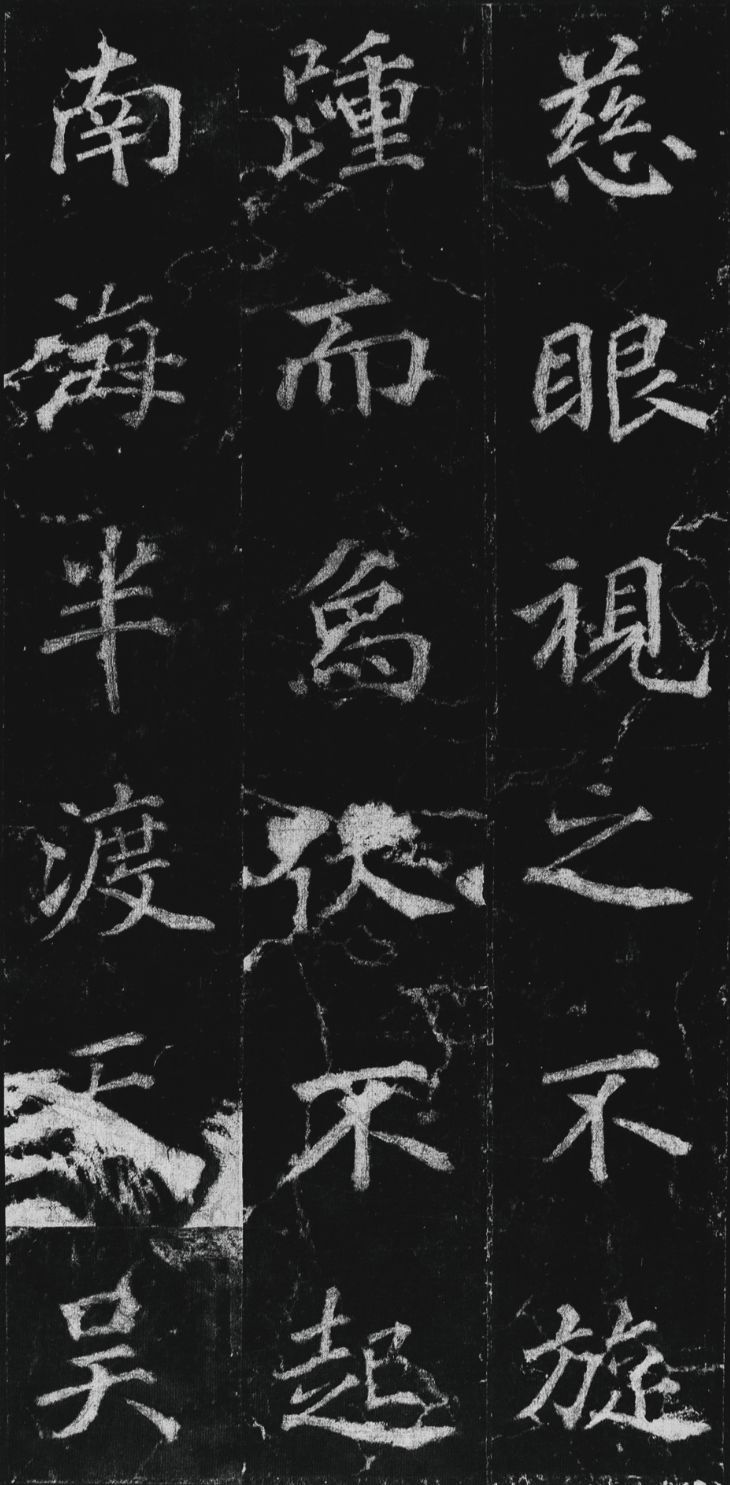 慈眼視之不旋
踵而爲伏不起
南海半渡天吳